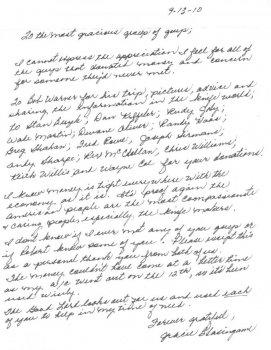 9-13-10
To the most gracious group of guys;
I cannot express the appreciation I feel for all of
the guys that donated money and concern
for someone they'd never met.
To Bob Warner for his trip, pictures, advice and
sharing the information in the knife world;
to Stan Buzek, Dan Keffeler, Rudy Joly;
Walt Martin; Duane Oliver; Randy Haas;
Greg Snead; Fred Rowe, Joseph Germani;
Andy Sharpe; Res McClellan, Chris Williams;
Rick Willis and Wayne Coe for your donations.
I know money is tight everywhere with the
economy as it is. It's proof again the
American people are the most compassionate
& caring people, especially the knife makers.
I don't know if I ever met any of you guys or
if Robert knew some of you. Please accept this
as a personal thank you from both of us.
The money couldn't have come at a better time
as my a/c went out on the 12th, so it's been
used wisely.
The Good Lord looks out for us and used each
of you to help in my time of need.
Forever grateful,
Gracie Blasingame